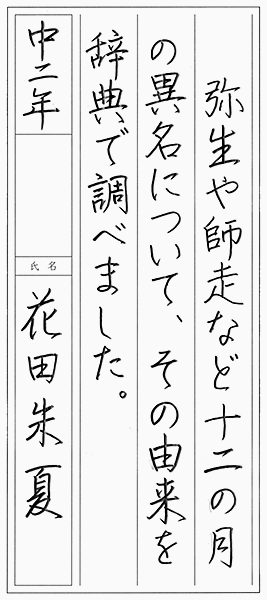 弥生や師走など十二の月
の異名について、その由来を
辞典で調べました。
中二年
氏名
花田朱夏